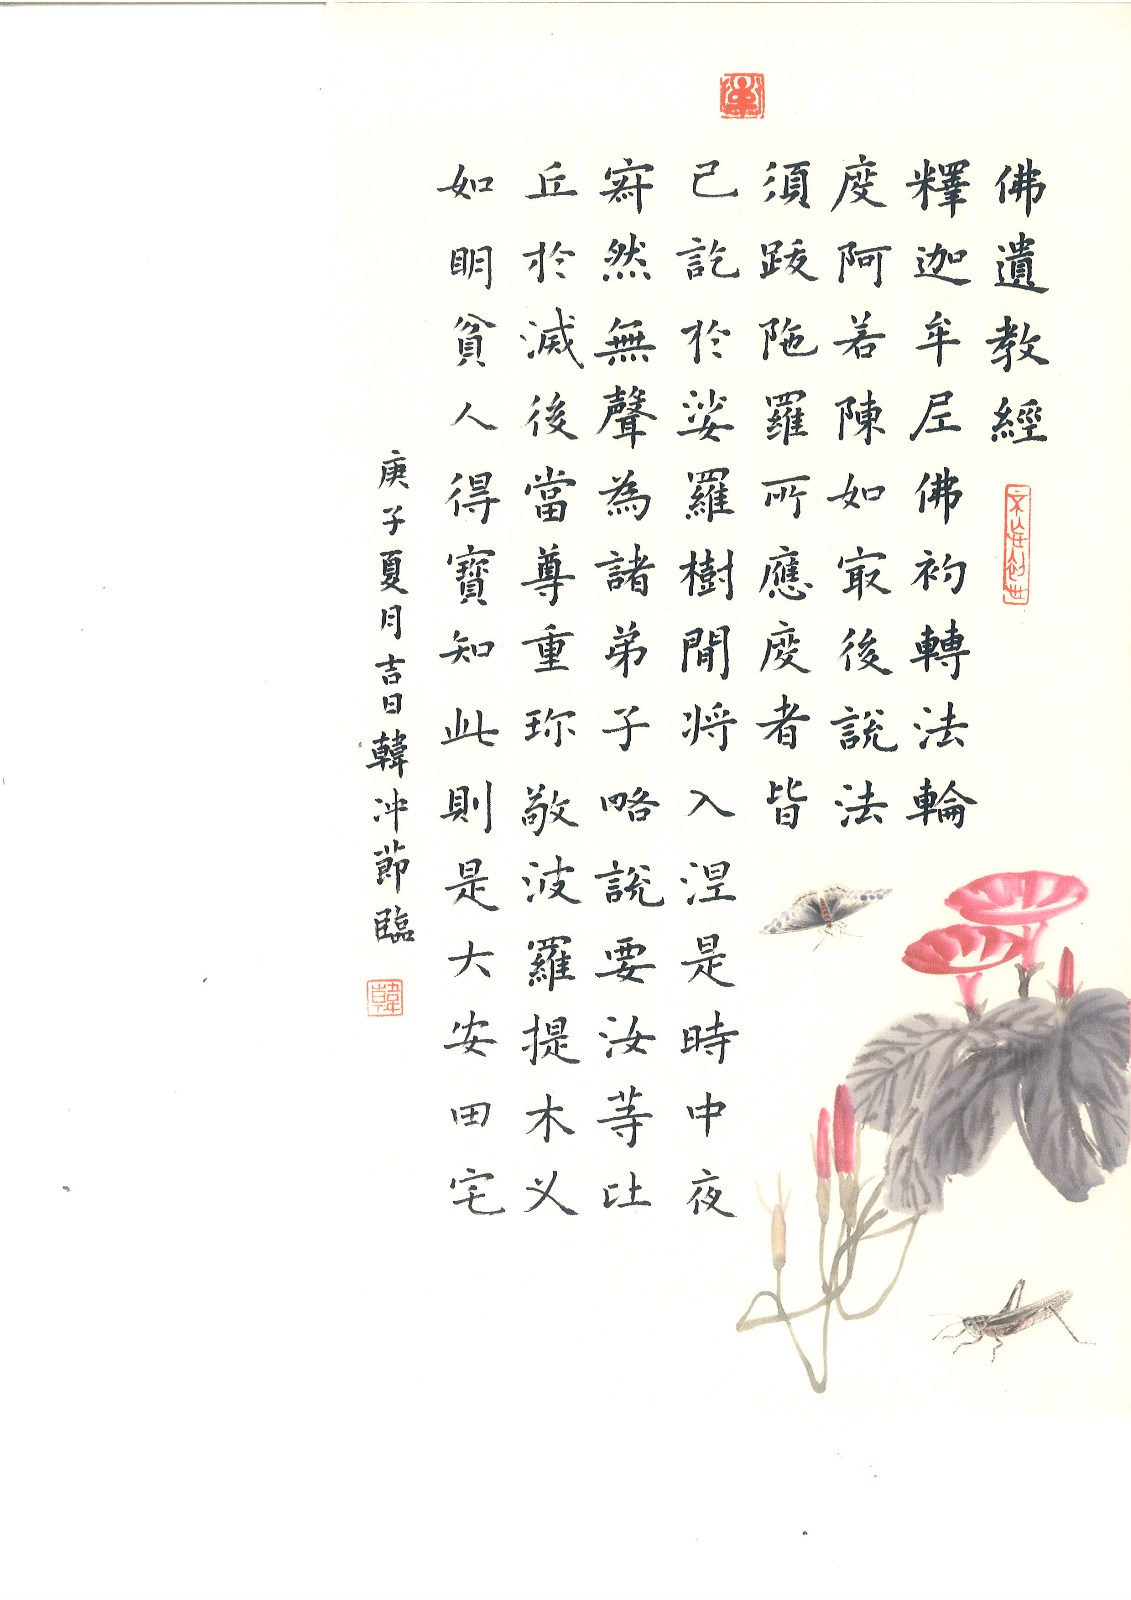 佛遺教經
釋迦牟尼佛初轉法輪
度阿若陳如冣後說法
須跋陁羅所應度者皆
已訖於娑羅樹間将入涅是時中夜
寂然無聲為諸弟子略說要汝等比
丘於滅後當尊重珎敬波羅提木义
如明貧人得寶知此則是大安田宅
庚子夏月吉日韓冲節臨
韓